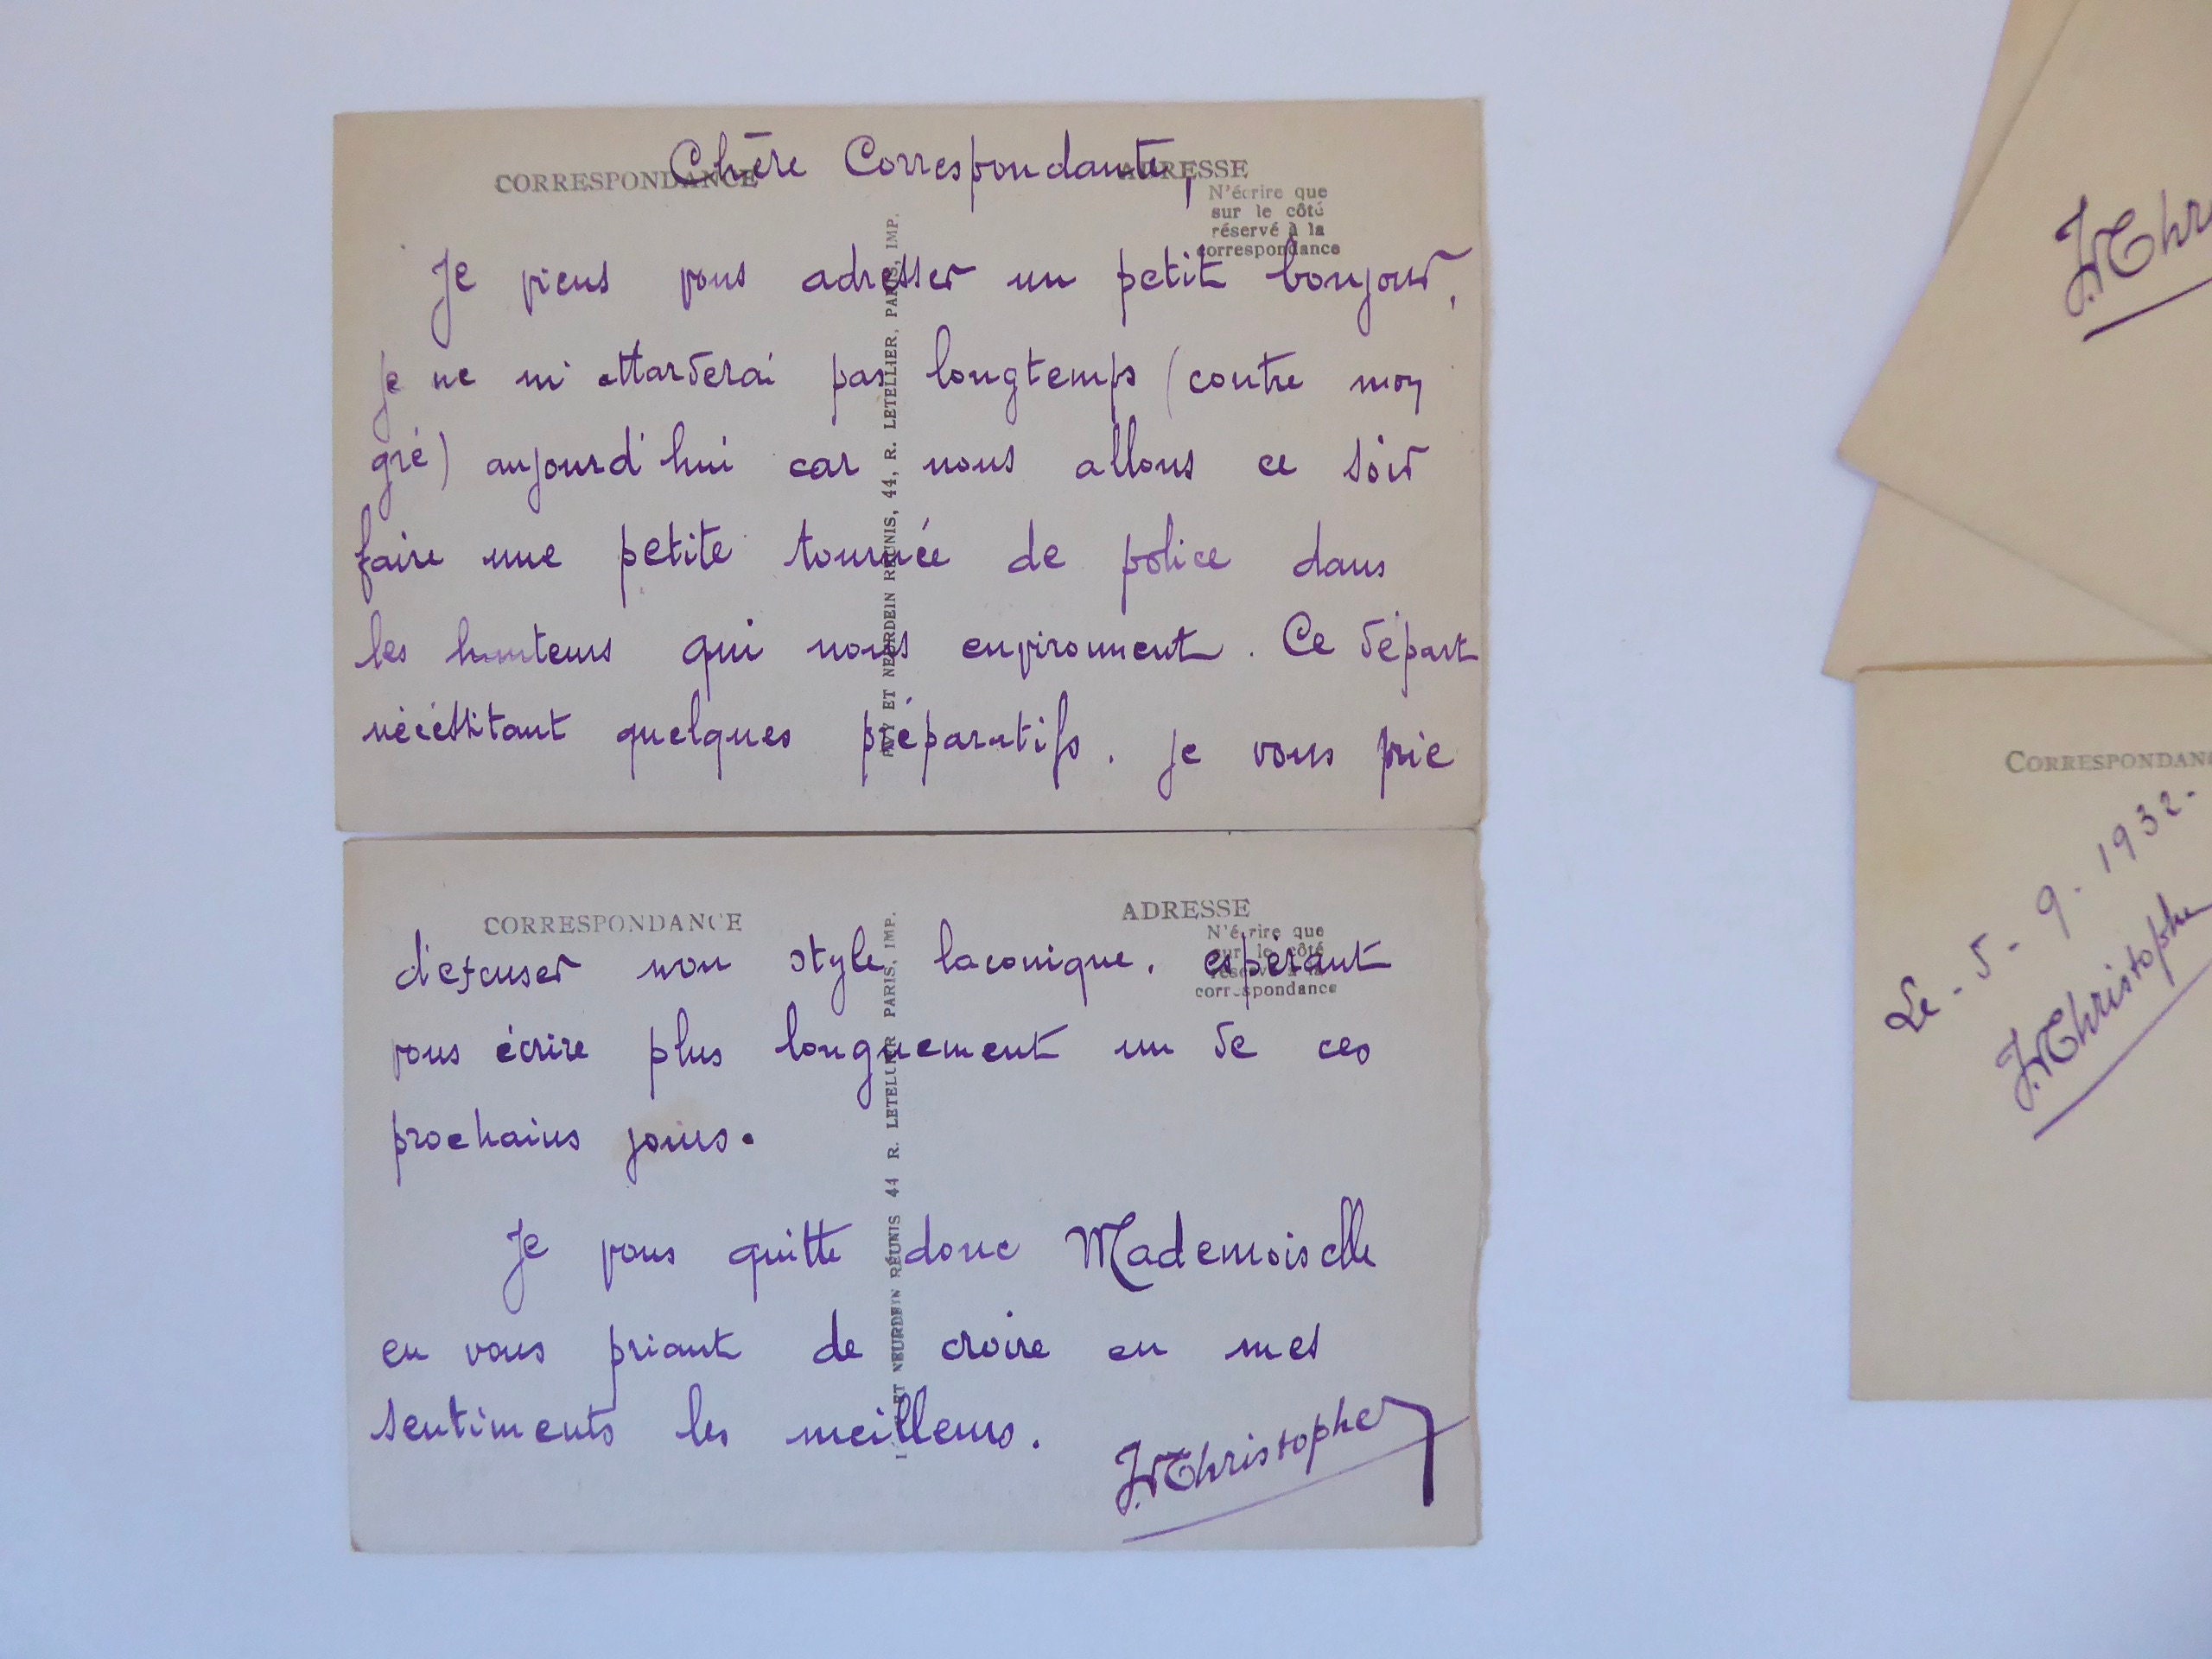 CORRESPONDANCE
ADRESSE
N'écrire que
sur le côté
réservé à la
correspondance
Chère Correspondante,
Je viens vous adresser un petit bonjour,
je ne m'attarderai pas longtemps (contre mon
gré) aujourd'hui car nous allons ce soir
faire une petite tournée de police dans
les hauteurs qui nous environnent. Ce départ
nécéssitant quelques préparatifs. je vous prie
LÉVY ET NEURDEIN RÉUNIS, 44, R. LETELLIER, PARIS, IMP.
CORRESPONDANCE
ADRESSE
N'écrire que
sur le côté
réservé à la
correspondance
d'excuser mon style laconique. espérant
vous écrire plus longuement un de ces
prochains jours.
Je vous quitte donc Mademoiselle
en vous priant de croire en mes
sentiments les meilleurs.
J.Christophe
ET NEURDEIN RÉUNIS 44 R. LETELLIER PARIS, IMP.
J.Chr
CORRESPONDAN
Le - 5 - 9 - 1932 -
J.Christophe